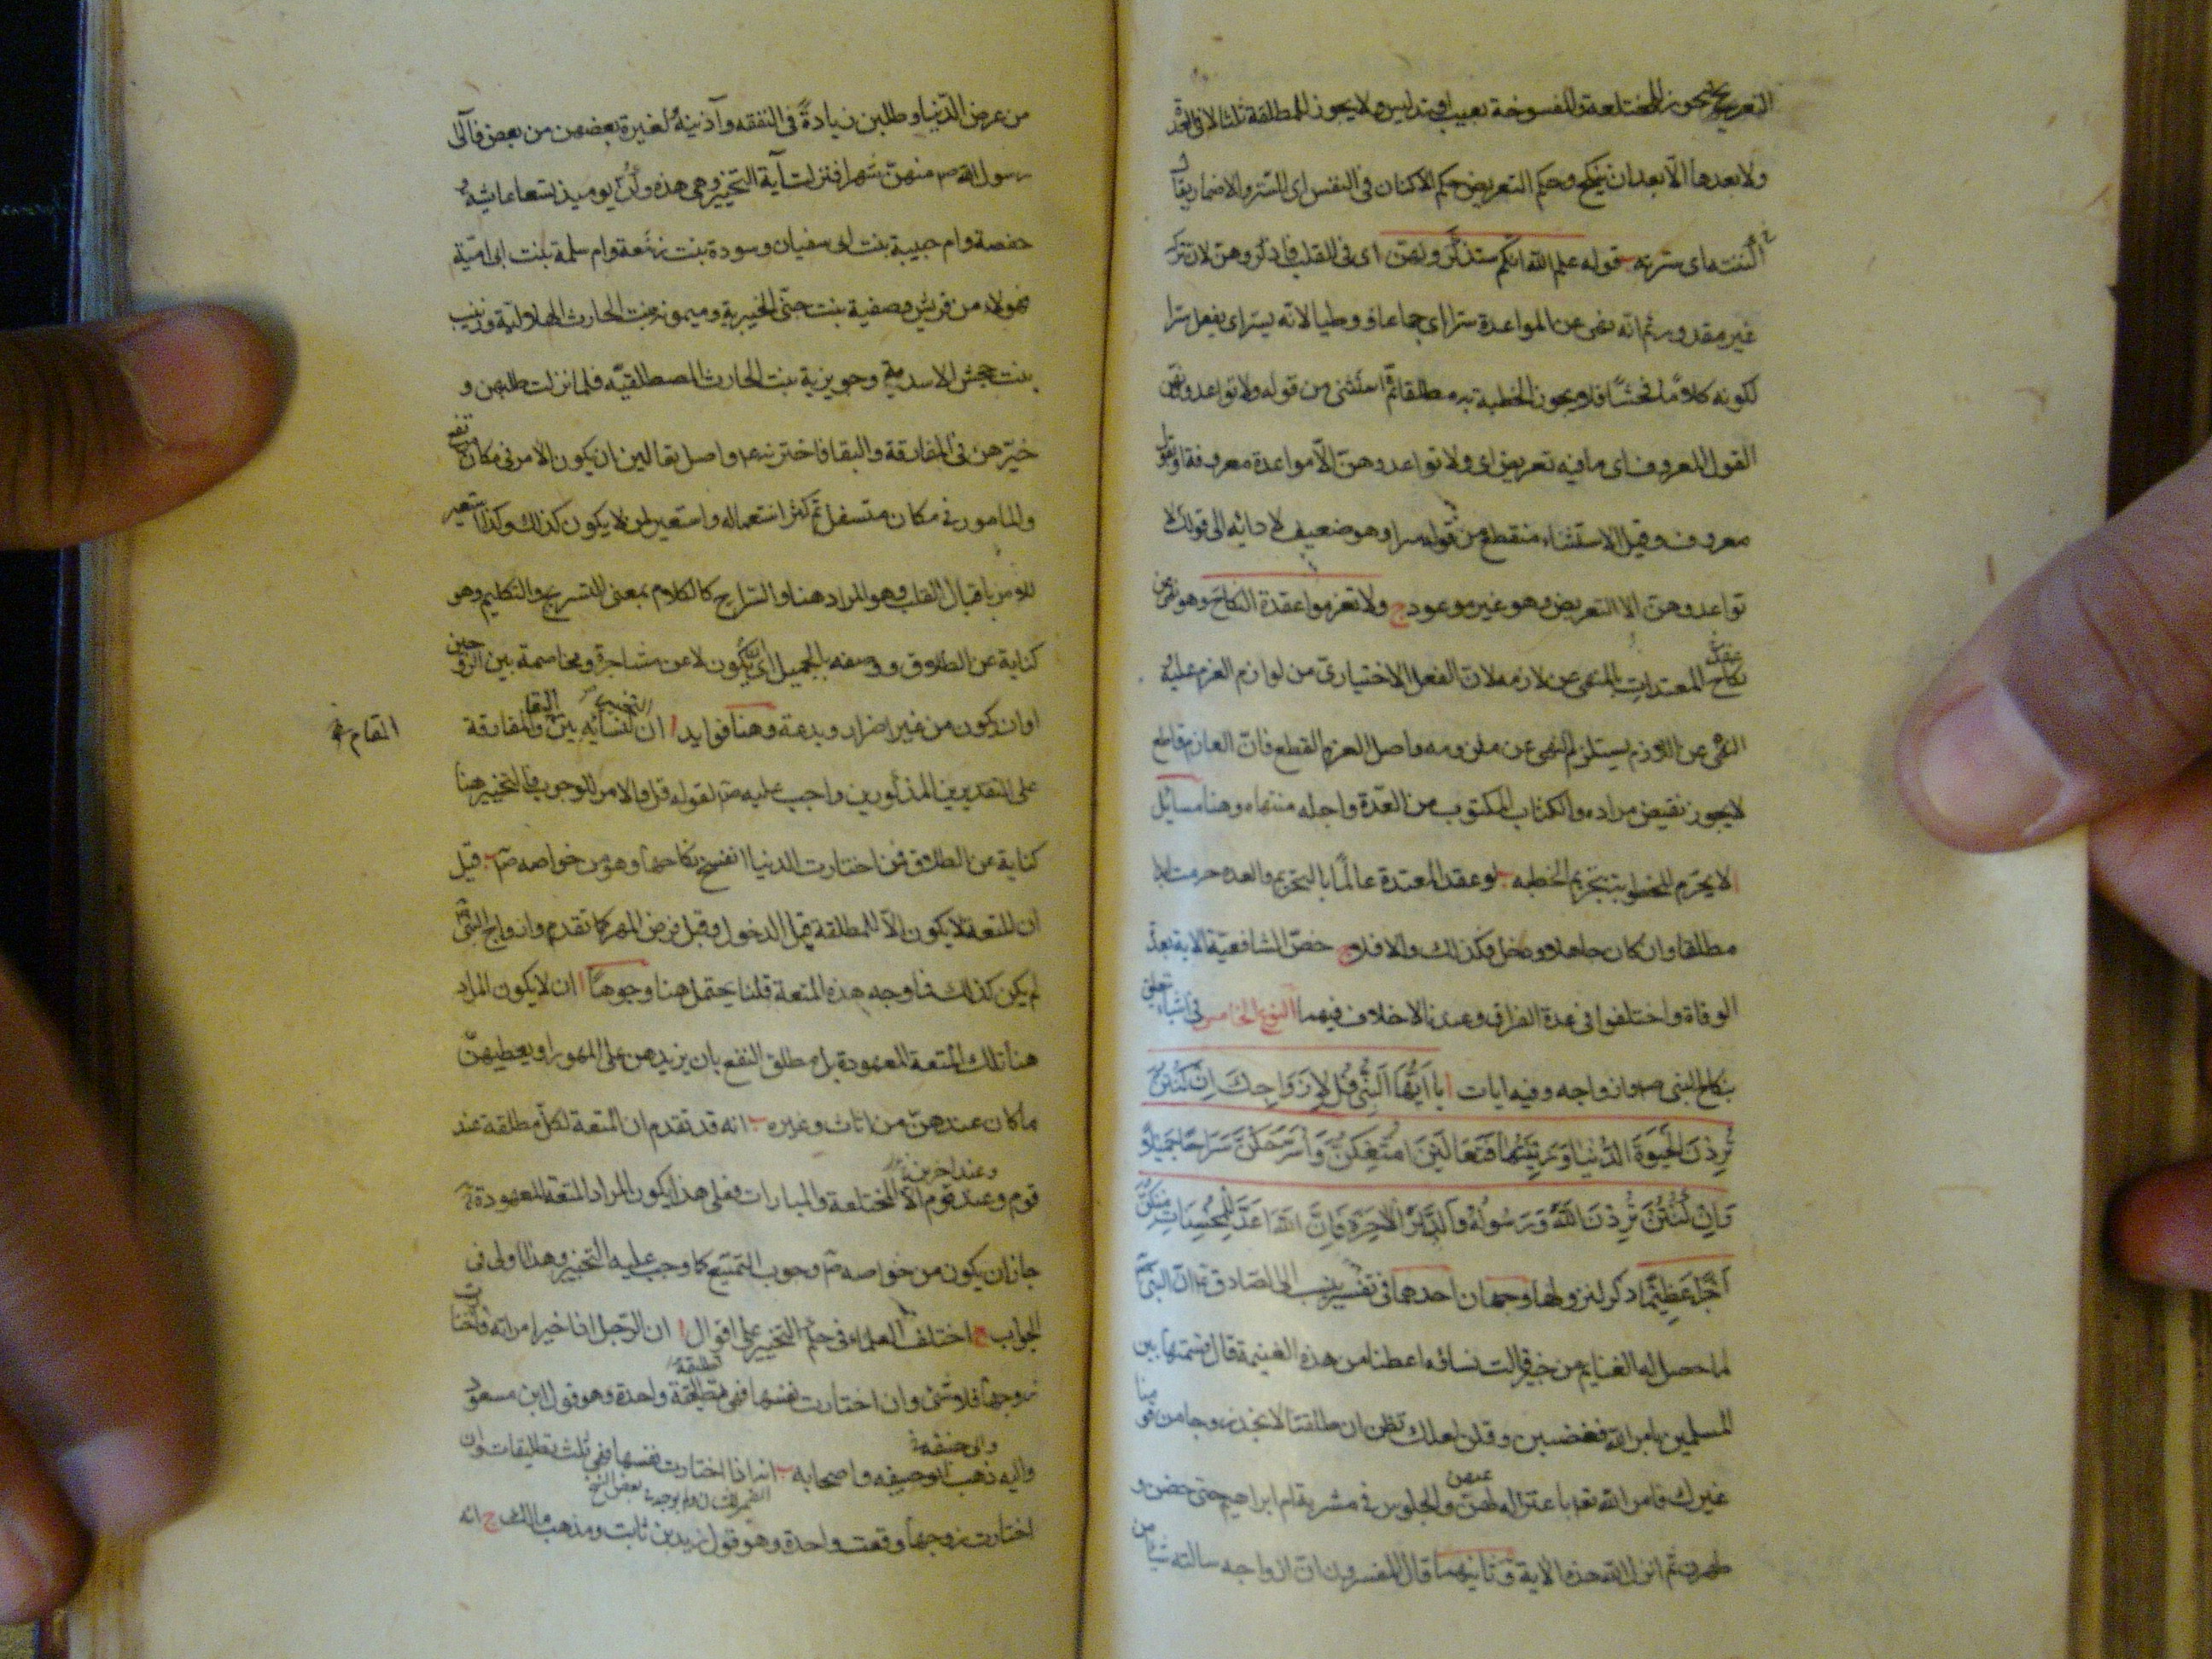 التعريض يجوز للمختلعة والمفسوخة بعيب او تدليس ولا يجوز للمطلقة ثلثا لا فى العدة
ولا بعدها الا بعد ان ينكح وحكم التعريض حكم الاكنان فى النفس اى الستر والاضمار يقال
اكننته اى سترته قوله علم الله انكم ستذكرونهن اى فى القلب فاذكروهن لان ترك
غير مقدور ثم انه نهى عن المواعدة سرا اى جماعا ووطيا لانه يسر اى يفعل سرا
لكونه كلاما فحشا فلا يجوز الخطبة به مطلقا ثم استثنى من قوله ولا تواعدوهن
القول المعروف اى ما فيه تعريض اى ولا تواعدوهن الا مواعدة معروفة او بقول
معروف وقيل الاستثناء منقطع من قوله سرا وهو ضعيف لادائه الى قولك لا
تواعدوهن الا التعريض وهو غير موعود ج ولا تعزموا عقدة النكاح وهو نهى عن
عقد نكاح المعتدات بالنهى عن لازمه لان الفعل الاختيارى من لوازم العزم عليه و
النهى عن اللازم يستلزم النهى عن ملزومه واصل العزم القطع فان العازم قاطع
لا يجوز نقيض مراده والكتاب المكتوب من العدة واجله منتهاه وهنا مسائل
ا لا يحرم المخطوبة بتحريم الخطبه ب لو عقد المعتدة عالما بالتحريم والعدة حرمت ابدا
مطلقا وان كان جاهلا ودخل فكذلك والا فلا ج خص الشافعية الاية بعدة
الوفاة واختلفوا فى عدة الفراق وعندنا لا خلاف فيهما النوع الخامس فى اشياء تتعلق
بنكاح النبى ص وازواجه وفيه ايات ا يا أَيُّهَا النَّبِىُّ قُل لِأَزْوَاجِكَ اِنْ كُنْتُنَّ
تُرِدْنَ الْحَيوةَ الدُّنْيا وَزِينَتَها فَتَعَالَيْنَ اُمَتِّعْكُنَّ وَاُسَرِّحْكُنَّ سَرَاحًا جَمِيلاً
وَاِنْ كُنْتُنَّ تُرِدْنَ اللَّهَ وَرَسُولَهُ وَالدَّارَ الْآخِرَةَ فَاِنَّ اللَّهَ اَعَدَّ لِلْمُحْسِنَاتِ مِنْكُنَّ
اَجْرًا عَظِيمًا ذكر لنزولها وجهان احدهما فى تفسير ينسب الى الصادق ع ان النبى ص
لما حصل له الغنايم من خيبر قالت نساؤه اعطنا من هذه الغنيمة قال قسمتها بين
المسلمين بامر الله فغضبن وقلن لعلك تظن ان طلقتنا لا نجد زوجا من قومنا
غيرك فامر الله تعالى باعتزالهن عنهن والجلوس فى مشربة ام ابراهيم حتى حضن و
طهرن ثم انزل الله هذه الاية وثانيهما قال المفسرون ان ازواجه سالته شيئا من
من عرض الدنيا وطلبن زيادة فى النفقه وآذينه لغيرة بعضهن من بعض فآلى
رسول الله ص منهن شهرا فنزلت آية التخيير وهى هذه وكن يوميذ تسعا عايشه و
حفصة وام حبيبة بنت ابى سفيان وسودة بنت زمعة وام سلمة بنت ابى امية
فهولاء من قريش وصفية بنت حيى الخيبرية وميمونه بنت الحارث الهلالية وزينب
بنت جحش الاسدية وجويرية بنت الحارث المصطلقيه فلما نزلت طلبهن و
خيرهن فى المفارقة والبقا فاخترنه واصل تعالين ان يكون الامر فى مكان مرتفع
والمامور فى مكان متسفل ثم كثر استعماله واستعير لمن لا يكون كذلك وكذا استعير
للامر باقبال القلب وهو المراد هنا والسراح كالكلام بمعنى التسريح والتكليم وهو
كناية عن الطلاق ووصفه بالجميل اى يكون لا عن مشاجرة ومخاصمة بين الزوجين
او ان يكون من غير اضرار وبدعة وهنا فوايد ا ان التخيير لنسائه بين البقا والمفارقة
المقام خ
على التقديرين المذكورين واجب عليه ص لقوله قل والامر للوجوب فالتخيير هنا
كناية عن الطلاق فمن اختارت الدنيا انفسخ نكاحها وهو من خواصه ص ب قيل
ان المتعة لا يكون الا للمطلقة قبل الدخول وقبل فرض المهر كما تقدم وازواج النبى ص
لم يكن كذلك فما وجه هذه المتعة قلنا يحتمل هنا وجوها ا ان لا يكون المراد
هنا تلك المتعة المعهودة بل مطلق النفع بان يزيدهن على المهور او يعطيهن
ما كان عندهن من اثاث وغيره ب انه قد تقدم ان المتعة لكل مطلقة عند
قوم وعند اخرين الا المختلعة والمبارات فعلى هذا يكون المراد المتعة المعهودة
جاز ان يكون من خواصه ص وجوب التمتيع كما وجب عليه التخيير وهذا اولى فى
الجواب ج اختلف العلماء فى حكم التخيير على اقوال ا ان الرجل اذا خير امراته فاختارت
زوجها فلا شئ وان اختارت نفسها فهى تطليقة واحدة وهو قول ابن مسعود
واليه ذهب ابو حنيفه واصحابه ب انه اذا اختارت نفسها فهى ثلث تطليقات وان
اختارت زوجها وقعت واحدة وهو قول زيد بن ثابت ومذهب مالك ج انه